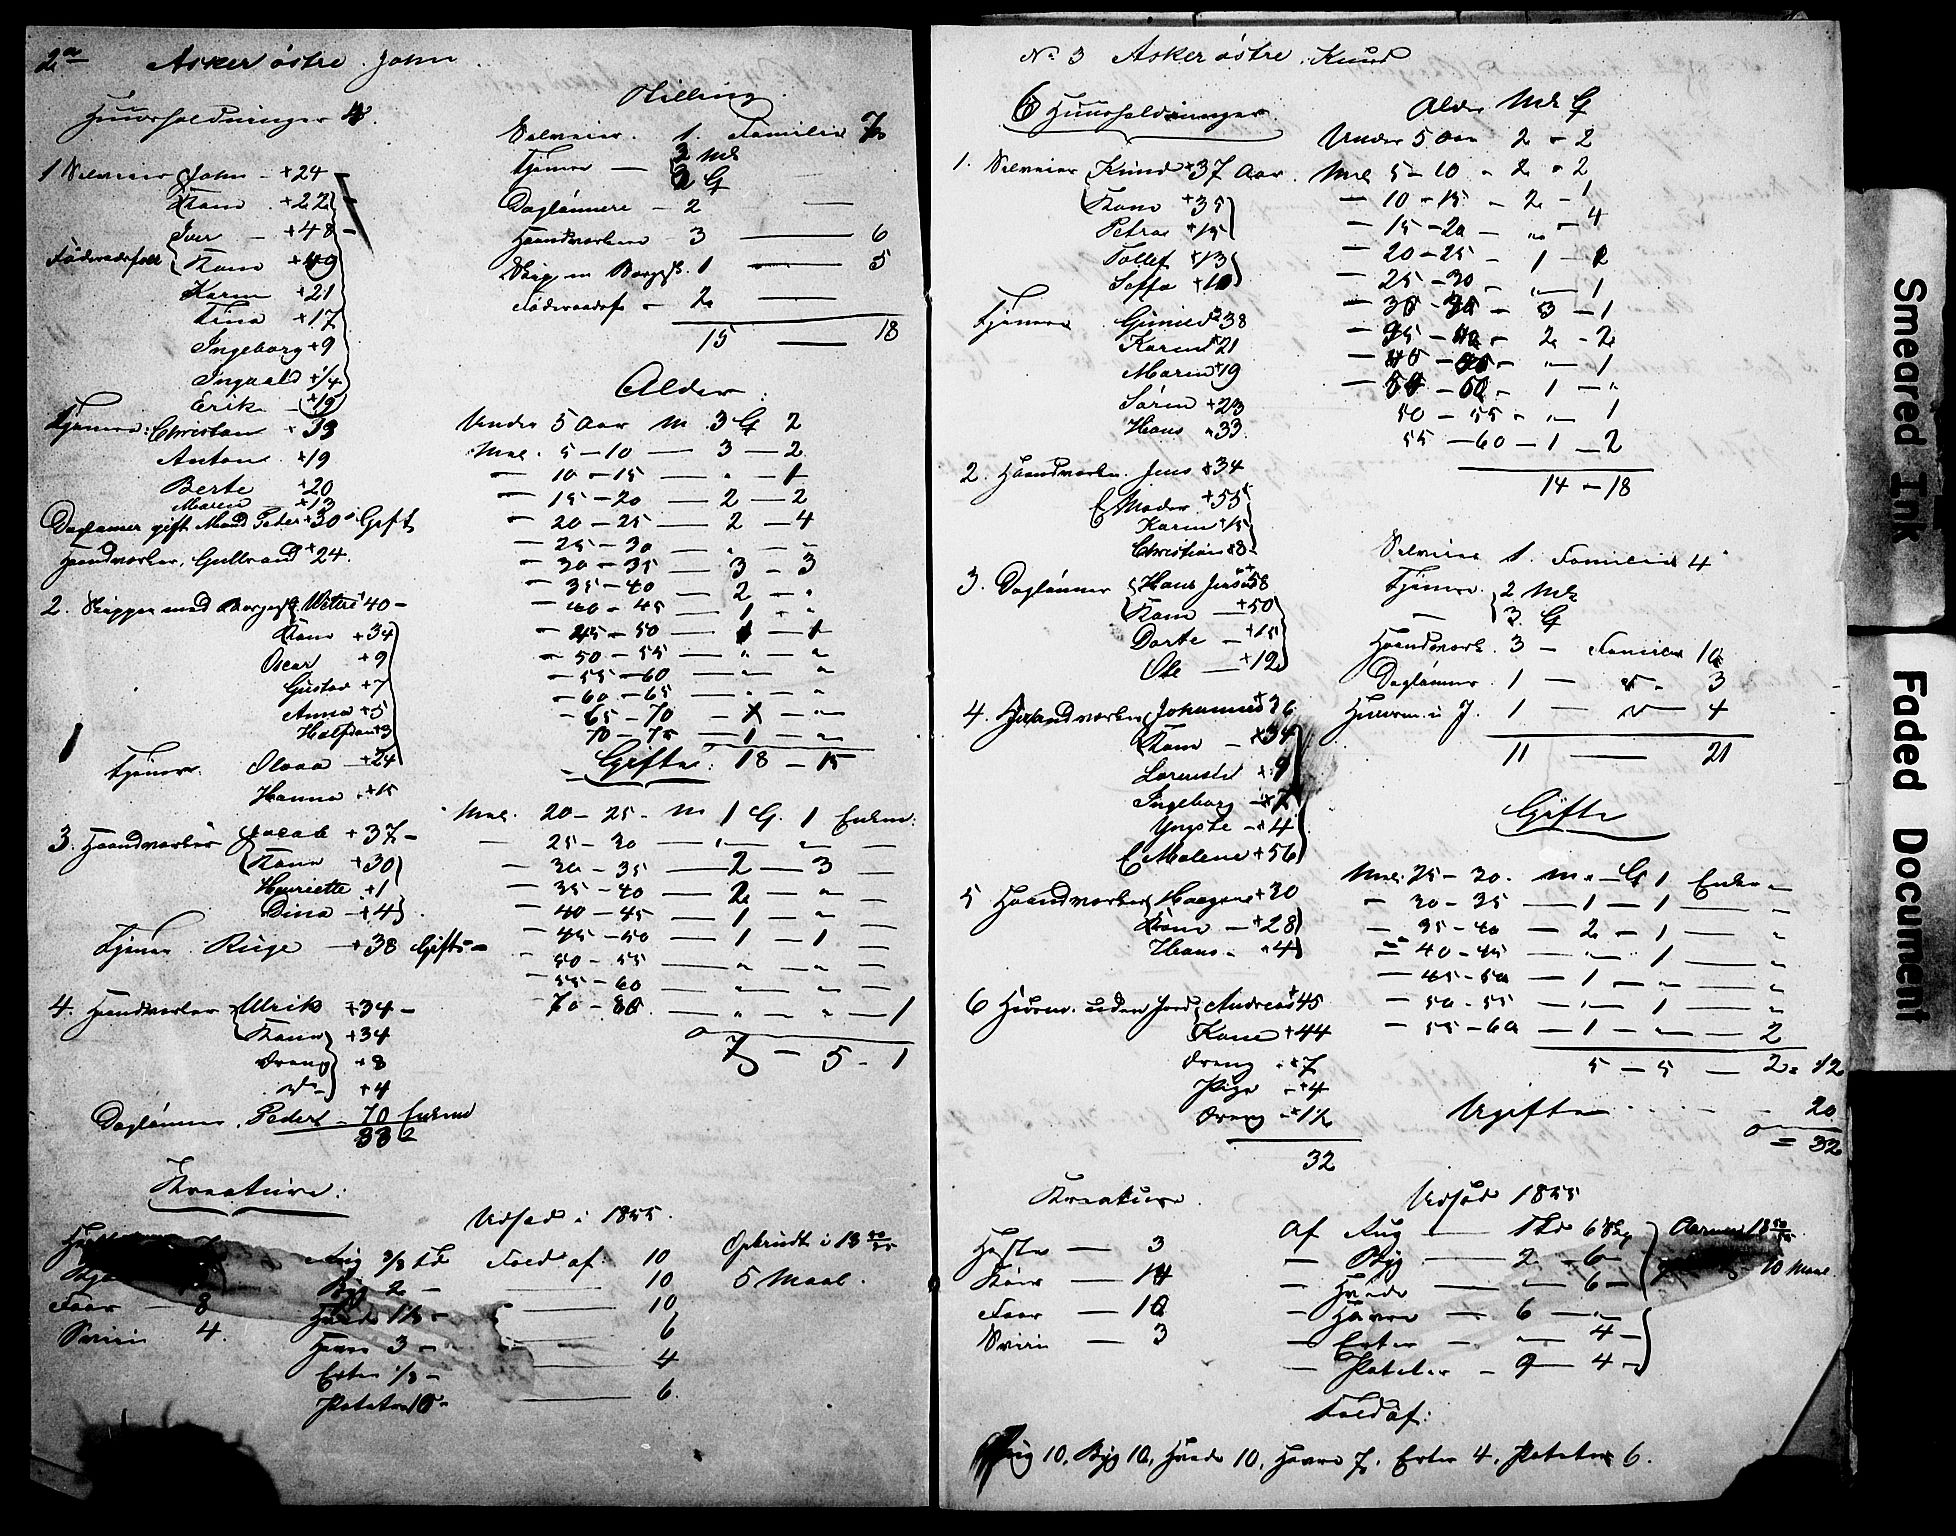 2a Asker östre John
Huusholdninger 4.
1 Selveier John +24
Kone +22
Iver +48
Föderaadsfolk Kone +49
Karen +21
Tina +17
Ingeborg +9
Ingvald +1/4
Erik +19
Tjenere: Christian +33
Anton +19
Berte +20
Maren +13
Daglønner gift Mand Peder +30 Gift
Haandverker, Gulbrand +24.
2. Skipper med Borgersk. 40
Kone +34
Oscar +9
Gustav +7
Anna +5
Halfdan +3
Tjenere Olava +24
Hanna +15
3. Haandverker Jacob +37
Kone +30
Henriette +1
Dina +4
Tjener Ruge +38 Gift
4. Haandverker Ulrik +34
Kone +34
Dreng +8
do +4
Daglønner, Peder 70 Enkem
33
Kreature:
8
Sviin 4.
Stilling
Selveier. 1. Familie 7
Tjenere 2 Mk
2 Q
Daglønnere 2 —
Haandverkere 3 — 6
Skipper m Borgersk. 1 — 5
Föderaadsf 2 —
15 — 18
Alder:
Under 5 Aar M. 3 Q 2
Mel. 5-10 — 3 — 2
10-15 — " — 1
15-20 — 2 — 2
20-25 — 2 — 4
25-30 — " — "
30-35 — 3 — 3
35-40 — 2 — "
40-45 — 1 "
45-50 — 1 — 1
50-55 — " — "
55-60 — " "
60-65 — " — "
65-70 — — "
70-75 — 1 — "
Gifte: 18 — 15
Mel. 20-25 M 1 Q. 1 Enkem:
25-30 — " — " —
30-35 — 2 — 3 —
35-40 — 2 — " —
40-45 — 1 — " —
45-50 — 1 — 1 —
50-55 — " — " —
55-60 — " — " —
70-80 — " — " — 1
7 — 5 - 1
Udsæd i 1855.
Rug 3/8 Td Fold af: 10
Byg 2 — 10
Hvede 1/8 — 10
Havre 3 — 6
Erter 1/8 — 4
Poteter 10 — 6.
Opbrudt i 18 50/55
5 Maal.
No 3 Asker östre. Knud
6 Huusholdninger
1. Selveier Knud +37 Aar.
Kone +35
Petra +15
Tollef +13
Soffa +10
Tjenere Gunild 38
Karen 21
Maren +19
Søren +23
Hans 33.
2. Haandverker Jens +34
E Moder +55
Karen +15
Christian +8
3. Daglønner Hans Jensen 58
Kone +50
Dorte +15
Ole +12
4. Haandverker Johannes 36
Kone +34
Lorentse +9
Ingeborg +7
Yngste +4
E Malene +56
5 Haandverker Haagen +30
Kone +28
Hans +4
6 Huusm. uden Jord Andreas +45
Kone +44
Dreng +7
Pige +4
Dreng 1½
32
Kreature.
Heste — 3
Køer — 14
Faar — 10
Sviin — 3
Alder Mk Q
Under 5 Aar 2 - 2
Mel 5-10 - 2 - 2
10-15 - 2 - 1
15-20 — " — 4
20-25 — 1 — 2
25-30 — " — 1
30-35 — 3 — 1
35-40 — 2 - 2
40-45 — " — 1
45-50 — 1 — "
50-55 — " 1
55-60 — 1 — 2
14 - 18
Selveier 1. Familie 4
Tjenere 2 Mk
3 Q
Haandverk. 3 — Familier 10
Daglønner. 1 — do 3
Huusm. u J. 1 — do 4
11 — 21
Gifte
Mel. 25-30. M " Q 1 Enkem "
30-35 — 1 — 1 — "
35-40 — 2 — 1 — "
40-45 — " — 1 — "
45-50 — 1 — " — "
50-55 — " — 1 — "
55-60 — 1 — " — 2
5 — 5 — 2 = 12
Ugifte 20
= 32
Udsæd 1855
Af Rug — 1 Td 6 Skp
Byg — 2 - 6
Hvede — " — 6
Havre — 6 — "
Erter — " — 4
Poteter — 9 — 4
18 50/55
10 Maal.
Fold af:
Rug 10, Byg 10, Hvede 10, Havre 7, Erter 4, Poteter 6.
Smeared Ink
Faded Document